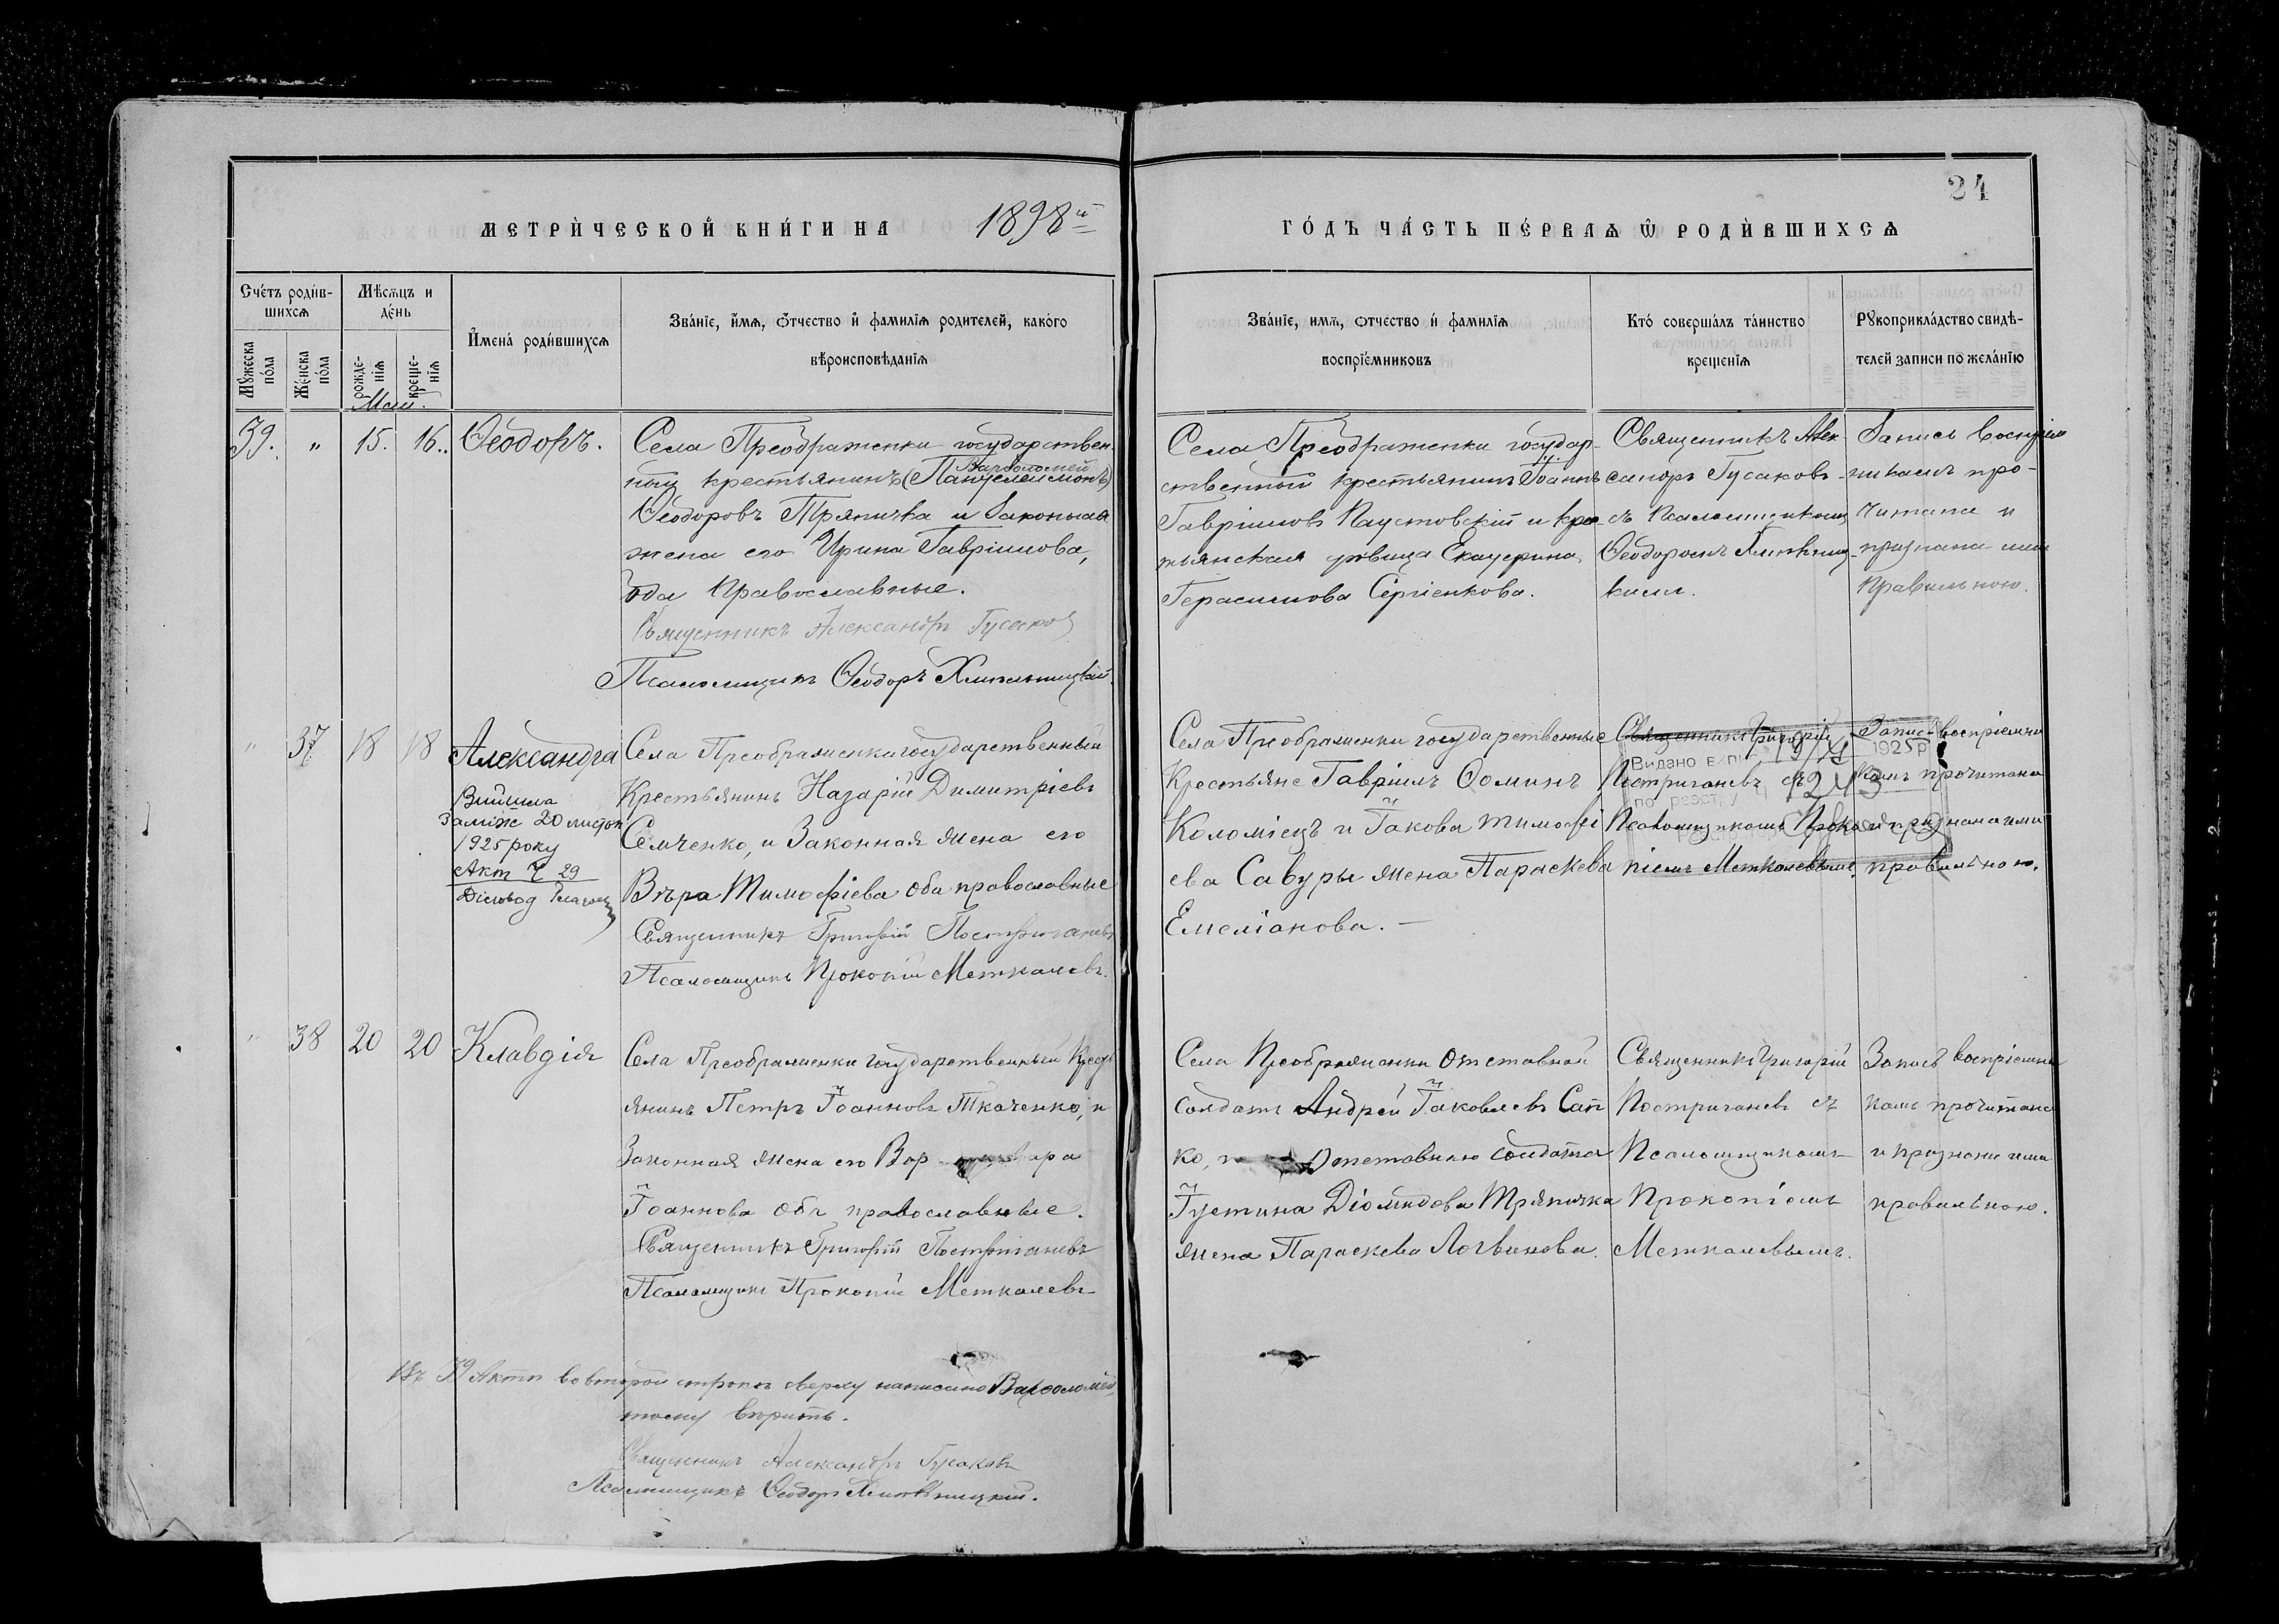 24
МЕТРИ́ЧЕСКОЙ КНИ́ГИ НА 1898й
ГО́ДЪ ЧА́СТЬ ПЕ́РВАѦ Ѽ РОДИ́ВШИХСѦ
Сче́тъ роди́в-
шихсѧ
Мѣсѧцъ и
де́нь
И҆мена́ роди́вшихсѧ
Зва́нїе, и҆́мѧ, ѻ҆́тчество и҆ фамилїѧ родителей, како́гѡ
вѣроисповѣданїѧ
Мꙋжеска
по́ла
Же́нска
по́ла
рожде-
нїѧ
креще-
нїѧ
Маій.
Зва́нїе, имѧ, ѻтчество и҆ фамилїѧ
воспрїе́мниковъ
Кто́ соверша́лъ та́инство
креще́нїѧ
Рꙋкоприкла́дство свидѣ-
телей записи по жела́нїю
39. " 15. 16. Ѳеодоръ.
Села Преображенки государствен-
ный крестьянинъ (Пантелеимонъ)
Варѳоломей
Ѳеодоровъ Тряпичка и Законная
жена его Ирина Гавріилова,
оба Православные.
Священникъ Александръ Гусаковъ
Псаломщикъ Ѳеодоръ Хмельницкій.
Села Преображенки государ-
ственный крестьянинъ Іоаннъ
Гавріиловъ Паустовскій и крес-
тьянская дѣвица Екатерина
Герасимова Сергіенкова.
Священникъ Алек-
сандръ Гусаковъ
съ Псаломщикомъ
Ѳеодоромъ Хмельниц-
кимъ.
Запись воспріем
никамъ про-
читана и
признана ими
Правильною.
" 37 18 18 Александра
Вийшла
заміж 20 листоп
1925 року
Акт Ч 29
Діловод
Села Преображенки государственный
Крестьянинъ Назарій Димитріевъ
Семченко, и Законная жена его
Вѣра Тимофіева оба православные
Священникъ Григорій Постригановъ
Псаломщикъ Прокопій Меткалевъ.
Села Преображенки государственные
Крестьяне Гавріилъ Ѳоминъ
Коломіецъ и Іакова Тимофі
ева Сабуры жена Параскева
Емеліанова. —
Священникъ Григорій
Постригановъ съ
Псаломщикомъ Проко
піемъ Меткалевымъ.
Видано
1925 р
243
Запись воспріемни
камъ прочитана
и признана ими
правильною.
" 38 20 20 Клавдія
Села Преображенки государственный Крест
янинъ Петръ Іоанновъ Ткаченко, и
Законная жена его Вар вара
Іоаннова оба православные.
Священникъ Григорій Постригановъ
Псаломщикъ Прокопій Меткалевъ
Села Преображенки Отставной
Солдатъ Андрей Іаковлевъ Сап
ко, и Отставнаго Солдата
Іустина Діомидова Тряпичка
жена Параскева Логвинова.
Священникъ Григорій
Постригановъ съ
Псаломщикомъ
Прокопіемъ
Меткалевымъ.
Запись воспріемни
камъ прочитана
и признана ими
правильною.
Въ 39 Актѣ во второй строкѣ сверху написано Варѳоломей,
тому вѣрить.
Священникъ Александръ Гусаковъ
Псаломщикъ Ѳеодоръ Хмельницкій.